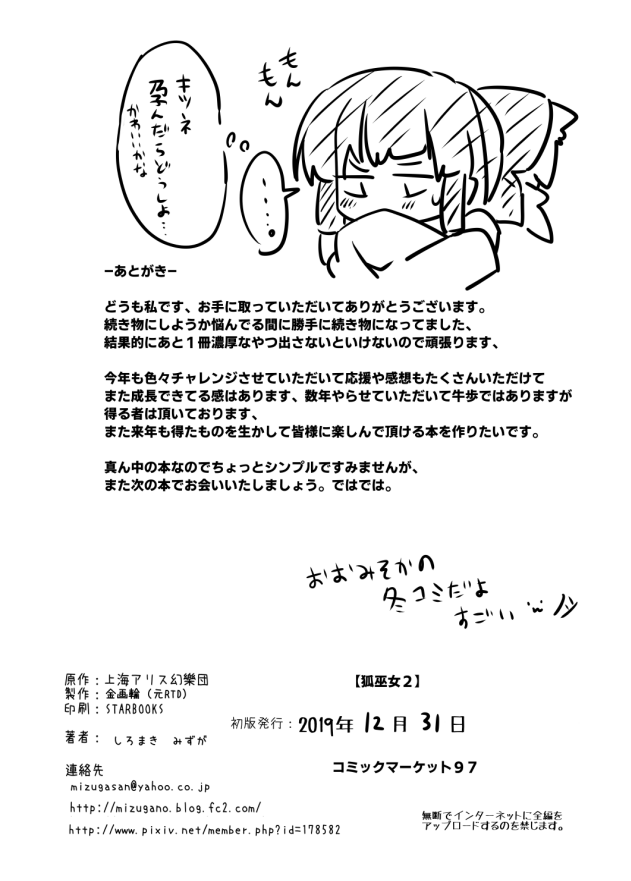 もんもん
キツネ
孕んだらどうしよ…
かわいいかな
・・・・。
−あとがき−
どうも私です、お手に取っていただいてありがとうございます。
続き物にしようか悩んでる間に勝手に続き物になってました、
結果的にあと１冊濃厚なやつ出さないといけないので頑張ります、
今年も色々チャレンジさせていただいて応援や感想もたくさんいただけて
また成長できてる感はあります、数年やらせていただいて牛歩ではありますが
得る者は頂いております、
また来年も得たものを生かして皆様に楽しんで頂ける本を作りたいです。
真ん中の本なのでちょっとシンプルですみませんが、
また次の本でお会いいたしましょう。ではでは。
おおみそかの
冬コミだよ
すごい
原作：上海アリス幻樂団
製作：企画輪（元RTD）
印刷：STARBOOKS
著者： しろまき みずが
連絡先
mizugasan@yahoo.co.jp
http://mizugano.blog.fc2.com/
http://www.pixiv.net/member.php?id=178582
【狐巫女２】
初版発行：2019年 12月 31日
コミックマーケット９７
無断でインターネットに全編を
アップロードするのを禁じます。